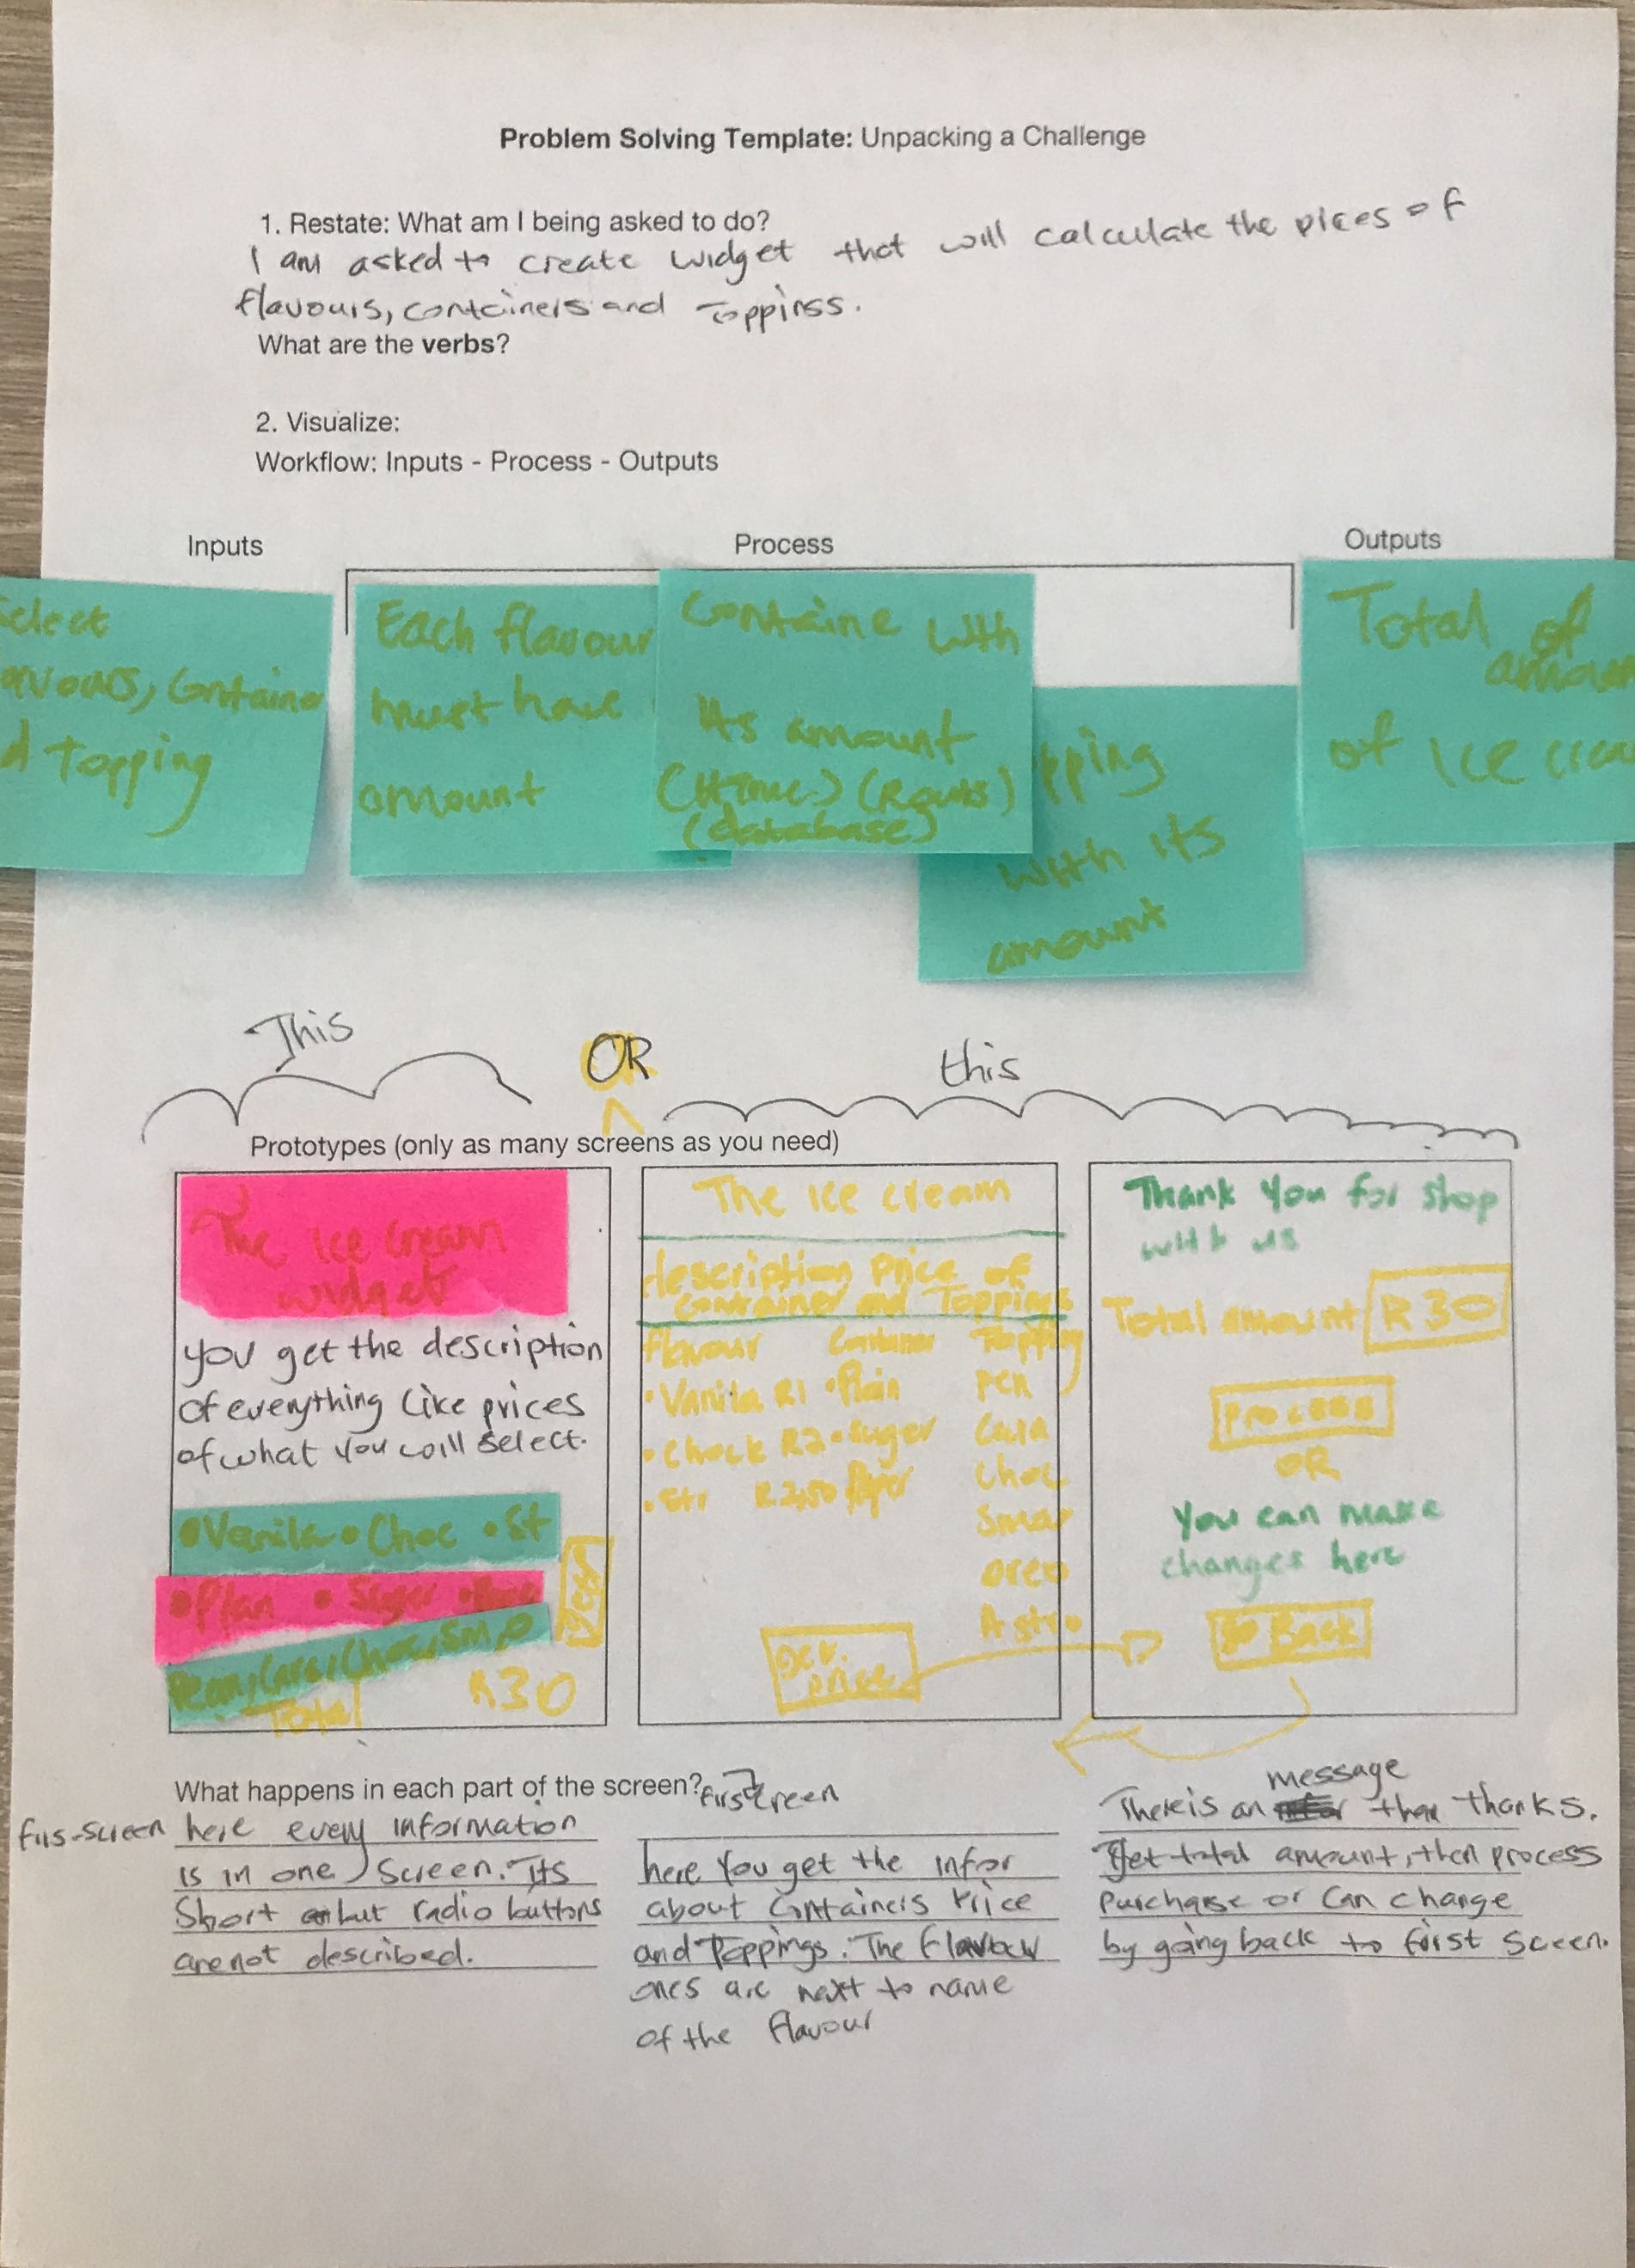 Problem Solving Template: Unpacking a Challenge
1. Restate: What am I being asked to do?
I am asked to create widget that will calculate the pices of
flavours, containers and Toppings.
What are the verbs?
2. Visualize:
Workflow: Inputs - Process - Outputs
Inputs
Process
Outputs
elect
avours, Containe
d Topping
Each flavour
must have
amount
Containe with
its amount
(HTML) (Routs)
(database)
pping
with its
amount
Total of
amoun
of Ice crea
This
OR
this
Prototypes (only as many screens as you need)
The Ice cream
widget
You get the description
of everything like prices
of what you will select.
• Vanila • Choc • St
• Plan • Suger
Pean, Cara, Choc, Sm, O
Total R30
The Ice cream
description Price of
Container and Toppings
flavour Container Topping
• Vanila R1 • Plain pen
• Chock R2 • Suger Cara
• Str R2,50 Choc
Smar
Oreo
Astro
Get
price
Thank You for shop
with us
Total amount R30
Process
OR
You can make
changes here
Go Back
What happens in each part of the screen?
firs-screen here every information
is in one screen. Its
Short but radio buttons
are not described.
firstcreen
here You get the infor
about Containers Price
and Toppings. The flavour
ones are next to name
of the flavour
message
There is an thar thanks.
get total amount, then process
purchase or can change
by going back to first screen.